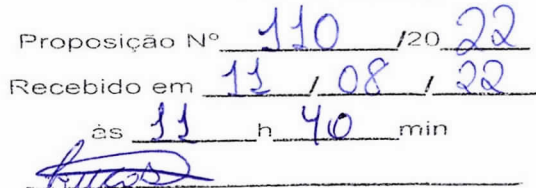 Proposição Nº 110 /20 22
Recebido em 11 / 08 / 22
às 11 h 40 min